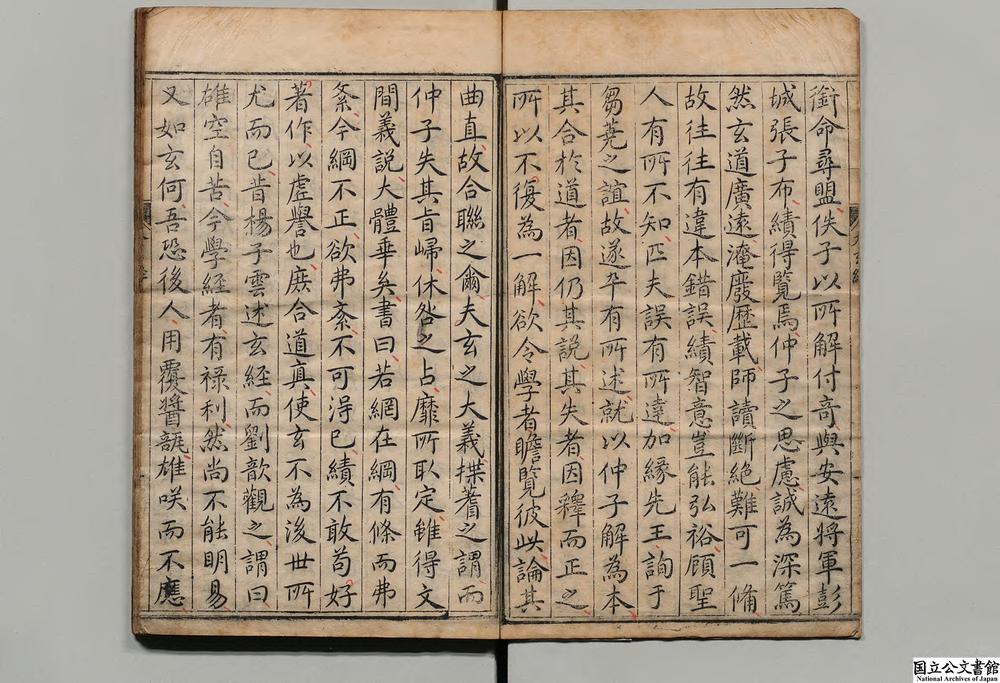 銜命尋盟佚子以所解付竒與安遠將軍彭
城張子布績得覽焉仲子之思慮誠為深篤
然玄道廣遠淹廢歷載師讀斷絕難可一備
故往往有違本錯誤績智意豈能弘裕顧聖
人有所不知匹夫誤有所達加緣先王詢于
芻蕘之誼故遂卒有所述就以仲子解為本
其合於道者因仍其說其失者因釋而正之
所以不復為一解欲令學者瞻覽彼此論其
曲直故合聯之爾夫玄之大義揲蓍之謂而
仲子失其旨歸休咎之占靡所取定雖得文
間義說大體乖矣書曰若網在綱有條而弗
紊今綱不正欲弗紊不可淂已績不敢苟好
著作以虛譽也庶合道真使玄不為後世所
尤而已昔楊子雲述玄經而劉歆觀之謂曰
雄空自苦今學經者有祿利然尚不能明易
又如玄何吾恐後人用覆醬瓿雄咲而不應
国立公文書館
National Archives of Japan